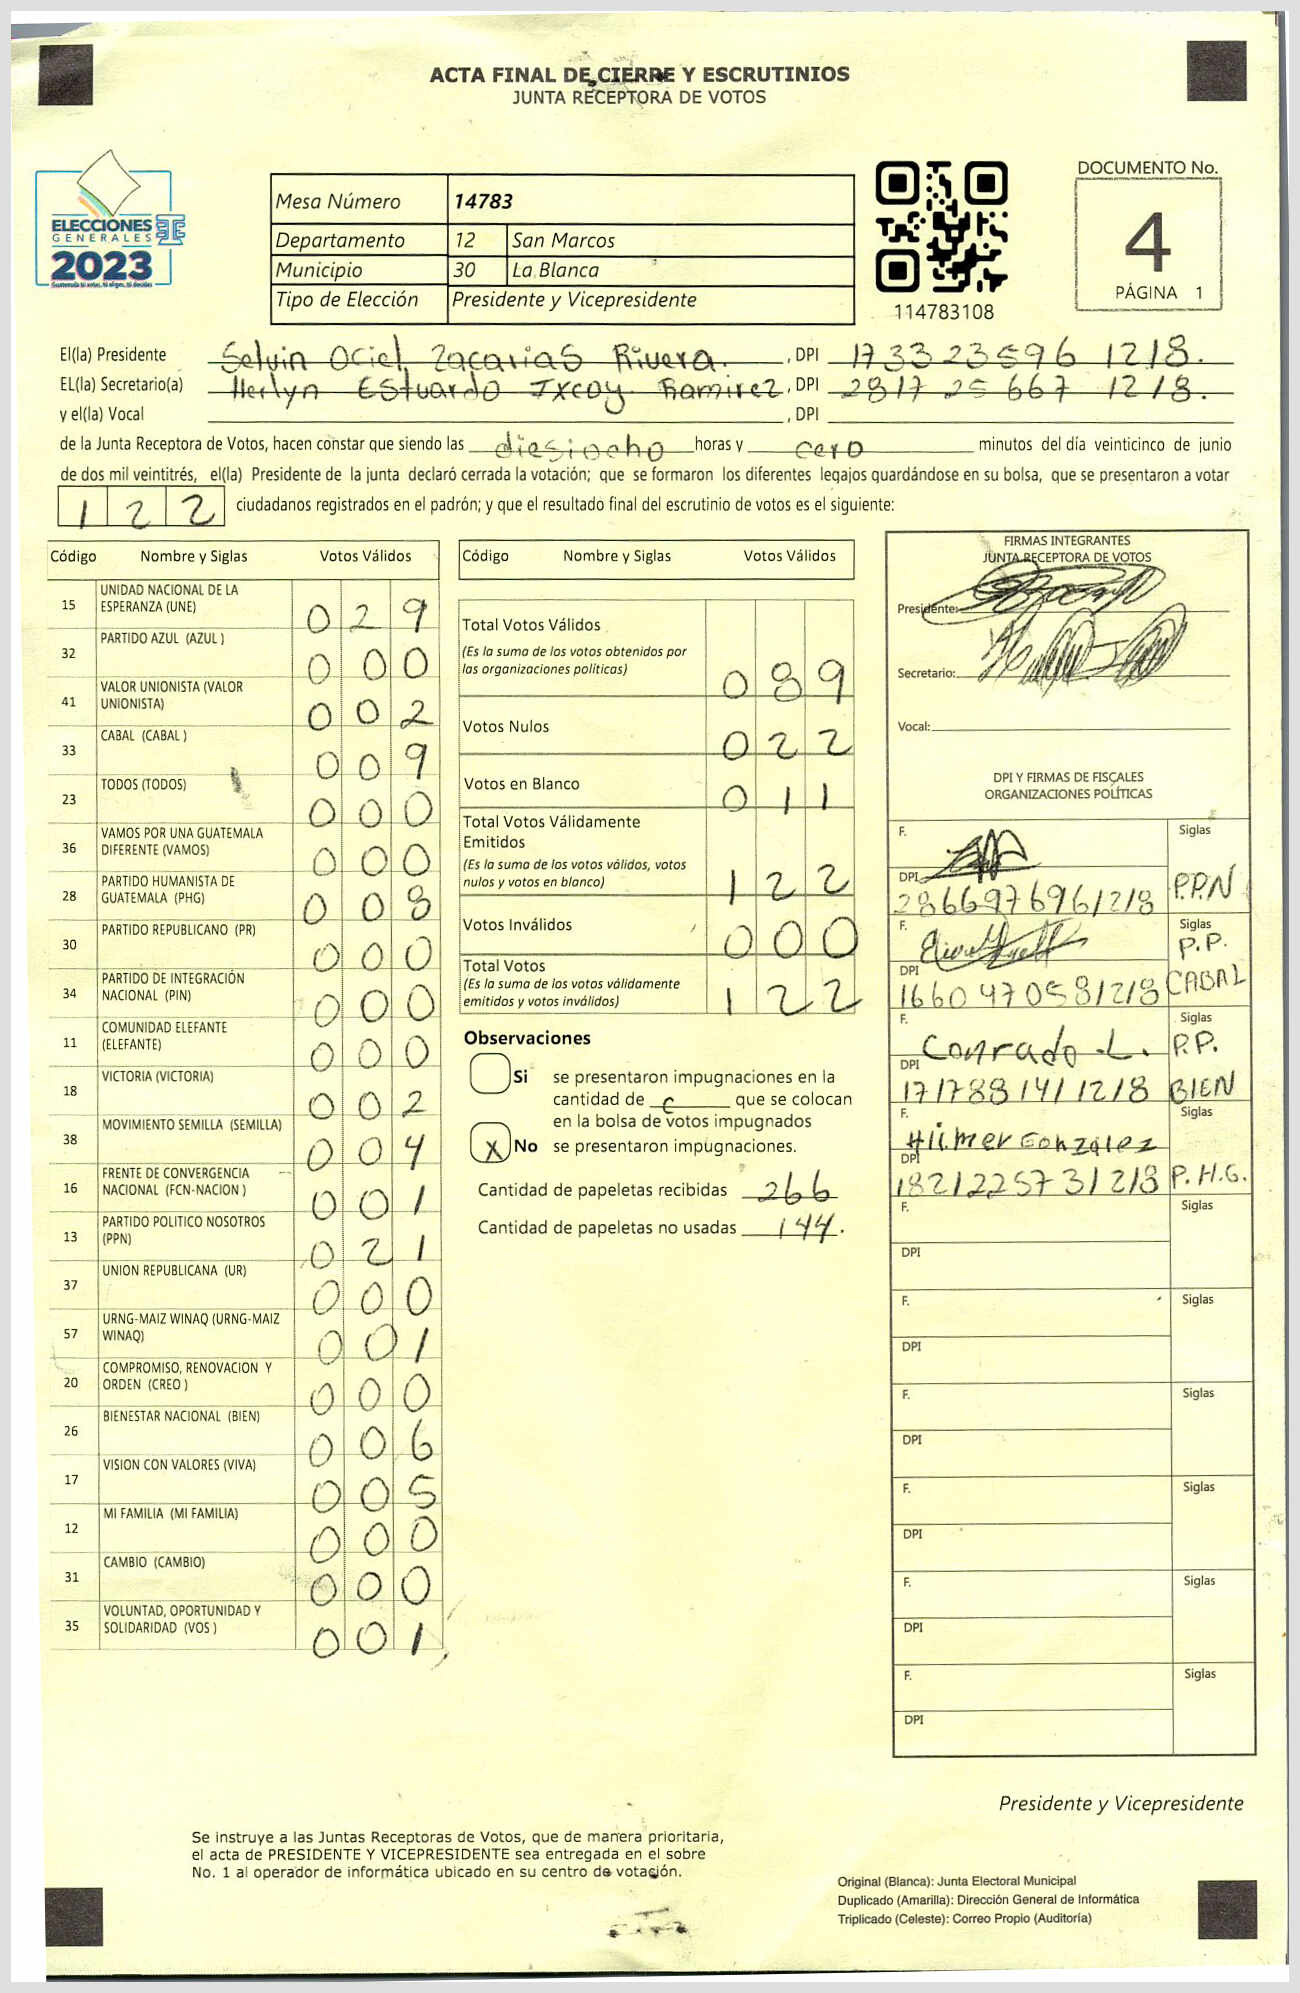 ACTA FINAL DE CIERRE Y ESCRUTINIOS
JUNTA RECEPTORA DE VOTOS
ELECCIONES
GENERALES
2023
Mesa Número 14783
Departamento 12 San Marcos
Municipio 30 La Blanca
Tipo de Elección Presidente y Vicepresidente
114783108
DOCUMENTO No.
4
PÁGINA 1
El(la) Presidente Selvin Ociel Zacarias Rivera. , DPI 1733 23596 1218.
EL(la) Secretario(a) Herlyn Estuardo Ixcoy Ramirez , DPI 2817 25 667 1218.
y el(la) Vocal , DPI
de la Junta Receptora de Votos, hacen constar que siendo las diesiocho horas y cero minutos del día veinticinco de junio
de dos mil veintitrés, el(la) Presidente de la junta declaró cerrada la votación; que se formaron los diferentes legajos guardándose en su bolsa, que se presentaron a votar
122 ciudadanos registrados en el padrón; y que el resultado final del escrutinio de votos es el siguiente:
Código Nombre y Siglas Votos Válidos
15 UNIDAD NACIONAL DE LA ESPERANZA (UNE) 029
32 PARTIDO AZUL (AZUL ) 000
41 VALOR UNIONISTA (VALOR UNIONISTA) 002
33 CABAL (CABAL ) 009
23 TODOS (TODOS) 000
36 VAMOS POR UNA GUATEMALA DIFERENTE (VAMOS) 000
28 PARTIDO HUMANISTA DE GUATEMALA (PHG) 008
30 PARTIDO REPUBLICANO (PR) 000
34 PARTIDO DE INTEGRACIÓN NACIONAL (PIN) 000
11 COMUNIDAD ELEFANTE (ELEFANTE) 000
18 VICTORIA (VICTORIA) 002
38 MOVIMIENTO SEMILLA (SEMILLA) 004
16 FRENTE DE CONVERGENCIA NACIONAL (FCN-NACION ) 001
13 PARTIDO POLITICO NOSOTROS (PPN) 021
37 UNION REPUBLICANA (UR) 000
57 URNG-MAIZ WINAQ (URNG-MAIZ WINAQ) 001
20 COMPROMISO, RENOVACION Y ORDEN (CREO ) 000
26 BIENESTAR NACIONAL (BIEN) 006
17 VISION CON VALORES (VIVA) 005
12 MI FAMILIA (MI FAMILIA) 000
31 CAMBIO (CAMBIO) 000
35 VOLUNTAD, OPORTUNIDAD Y SOLIDARIDAD (VOS ) 001
Código Nombre y Siglas Votos Válidos
Total Votos Válidos 089
(Es la suma de los votos obtenidos por
las organizaciones politicas)
Votos Nulos 022
Votos en Blanco 011
Total Votos Válidamente
Emitidos 122
(Es la suma de los votos válidos, votos
nulos y votos en blanco)
Votos Inválidos 000
Total Votos 122
(Es la suma de los votos válidamente
emitidos y votos inválidos)
Observaciones
Si se presentaron impugnaciones en la
cantidad de c que se colocan
en la bolsa de votos impugnados
x No se presentaron impugnaciones.
Cantidad de papeletas recibidas 266
Cantidad de papeletas no usadas 144.
FIRMAS INTEGRANTES
JUNTA RECEPTORA DE VOTOS
Presidente:
Secretario:
Vocal:
DPI Y FIRMAS DE FISCALES
ORGANIZACIONES POLÍTICAS
F. Siglas
DPI 2866976961218 P.P.N
F. Siglas P.P.
DPI 1660470581218 CABAL
F. Conrado .L. Siglas P.P.
DPI 1717881411218 BIEN
F. Hilmer Gonzalez Siglas
DPI 1821225731218 P.H.G.
F. Siglas
DPI
F. Siglas
DPI
F. Siglas
DPI
F. Siglas
DPI
F. Siglas
DPI
F. Siglas
DPI
Presidente y Vicepresidente
Se instruye a las Juntas Receptoras de Votos, que de manera prioritaria,
el acta de PRESIDENTE Y VICEPRESIDENTE sea entregada en el sobre
No. 1 al operador de informática ubicado en su centro de votación.
Original (Blanca): Junta Electoral Municipal
Duplicado (Amarilla): Dirección General de Informática
Triplicado (Celeste): Correo Propio (Auditoría)